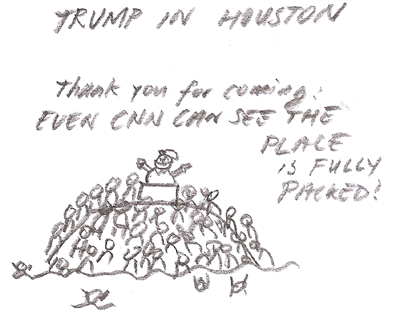 TRUMP IN HOUSTON
Thank you for coming!
EVEN CNN CAN SEE THE
PLACE
IS FULLY
PACKED!